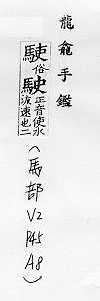 龍龕手鑑
俗駛正音使水流速也二
(馬部 V2 P45 A8)